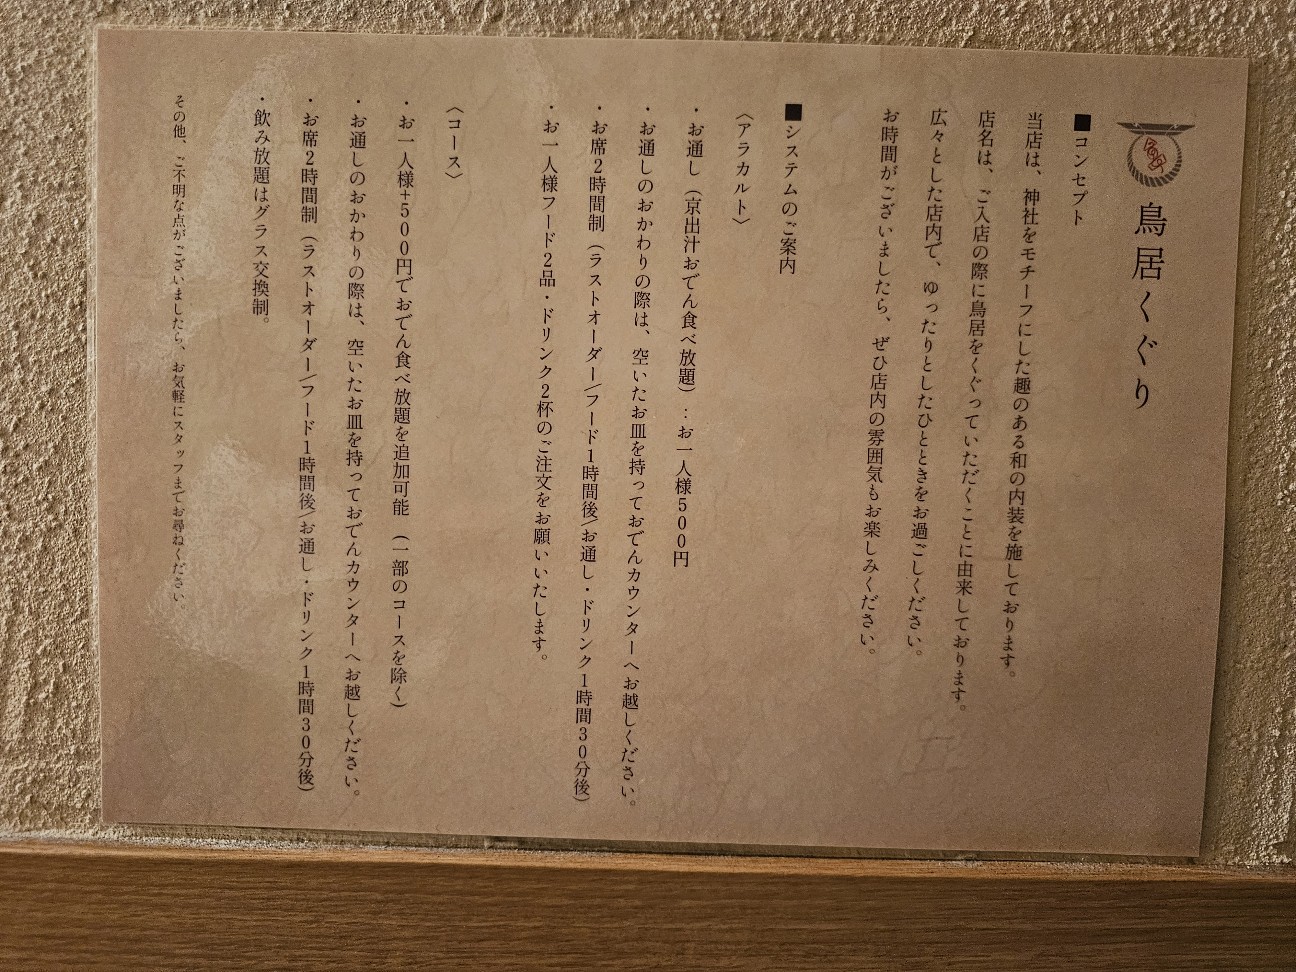 鳥居くぐり
■コンセプト
当店は、神社をモチーフにした趣のある和の内装を施しております。
店名は、ご入店の際に鳥居をくぐっていただくことに由来しております。
広々とした店内で、ゆったりとしたひとときをお過ごしください。
お時間がございましたら、ぜひ店内の雰囲気もお楽しみください。
■システムのご案内
〈アラカルト〉
・お通し（京出汁おでん食べ放題）：お一人様500円
・お通しのおかわりの際は、空いたお皿を持っておでんカウンターへお越しください。
・お席2時間制（ラストオーダー/フード1時間後/お通し・ドリンク1時間30分後）
・お一人様フード2品・ドリンク2杯のご注文をお願いいたします。
〈コース〉
・お一人様+500円でおでん食べ放題を追加可能（一部のコースを除く）
・お通しのおかわりの際は、空いたお皿を持っておでんカウンターへお越しください。
・お席2時間制（ラストオーダー/フード1時間後/お通し・ドリンク1時間30分後）
・飲み放題はグラス交換制。
その他、ご不明な点がございましたら、お気軽にスタッフまでお尋ねください。